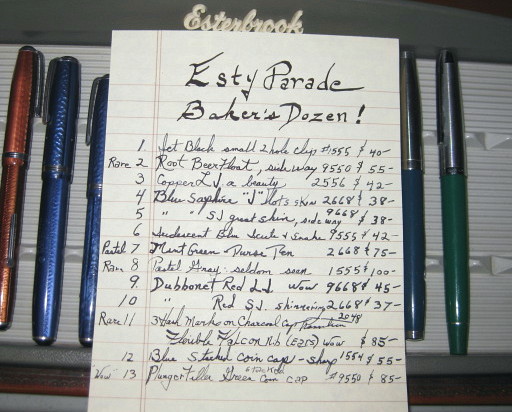 Esterbrook
Esty Parade
Baker's Dozen!
1 Jet Black small 2 hole clip #1555 $40-
Rare 2 Root Beer Float, side way 9550 $55-
3 Copper LJ, a beauty 2556 $42-
4 Blue Saphire "J" lots skin 2668 $38-
5 " " SJ great skin, side way 9668 $38-
6 Iridescent Blue Scute & Snake 9555 $42-
Pastel 7 Mint Green Purse Pen 2668 $75-
Rare 8 Pastel Gray, seldom seen 1555 $100-
9 Dubbonet Red LJ wow 9668 $45-
10 " Red SJ. shimmering 2668 $37-
Rare 11 3 Hard Marks on Charcoal Cap Transition 2048
Flexible Falcon Nib (Ears) wow $85-
12 Blue Stacked coin cap - sharp 1554 $55-
"Wow" 13 Plunger Filler Green stacked coin cap #9550 $85-